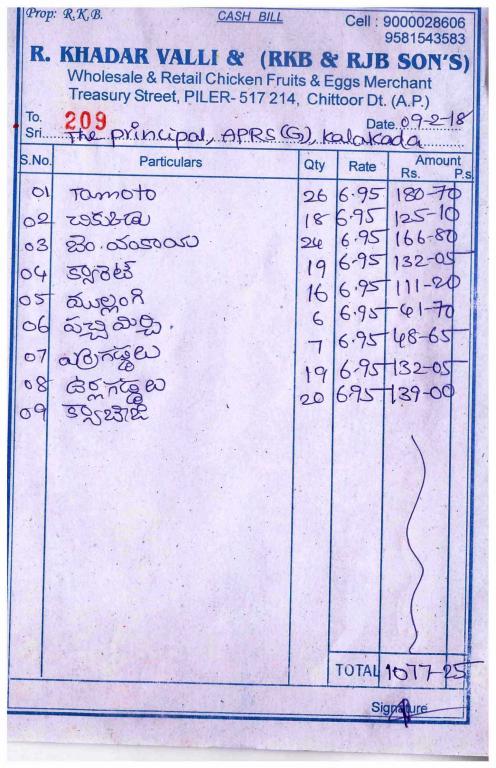 Prop: R.K.B. CASH BILL Cell : 9000028606
9581543583
R. KHADAR VALLI & (RKB & RJB SON'S)
Wholesale & Retail Chicken Fruits & Eggs Merchant
Treasury Street, PILER- 517 214, Chittoor Dt. (A.P.)
To. 209 Date. 09-2-18
Sri. The principal, APRS(G), Kalakada
S.No. Particulars Qty Rate Amount
Rs. P.s.
01 Tamoto 26 6.95 180-70
02 చిక్కుడు 18 6.95 125-10
03 బెం.వంకాయ 24 6.95 166-80
04 క్యారెట్ 19 6.95 132-05
05 ముల్లంగి 16 6.95 111-20
06 పచ్చి మిర్చి. 6 6.95 41-70
07 ఎర్రగడ్డలు 7 6.95 48-65
08 ఉర్లగడ్డలు 19 6.95 132-05
09 క్యాబేజి 20 6.95 139-00
TOTAL 1077-25
Signature